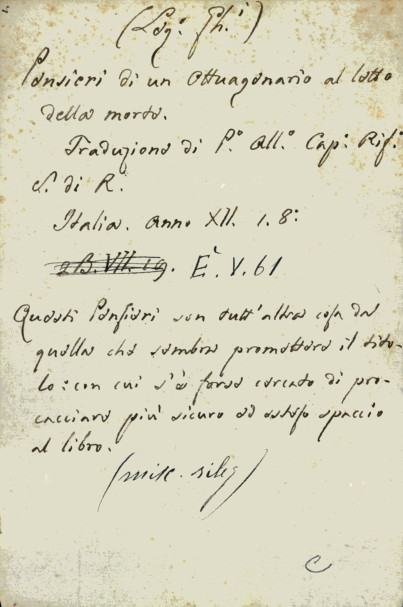 (Log.° Gh.i)
Pensieri di un Ottuagenario al letto
della morte.
Traduzione di P.° All.° Cap: Rif.°
S. di R.
Italia. Anno XII. 1. 8:
2B. VII. 19. È. V. 61
Questi Pensieri son tutt'altra cosa da
quella che sembra promettere il tito-
lo: con cui s'è forse cercato di pro-
cacciare più sicuro ed esteso spaccio
al libro.
(misc. rileg)
C